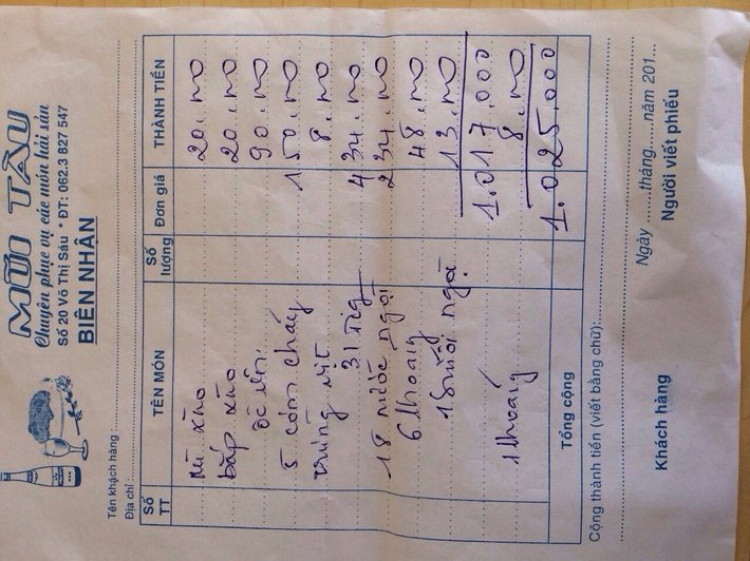 MŨI TÀU
Chuyên phục vụ các món hải sản
Số 20 Võ Thị Sáu * ĐT: 062.3 827 547
BIÊN NHẬN
Tên khách hàng :
Địa chỉ :
Số TT TÊN MÓN Số lượng Đơn giá THÀNH TIỀN
mì xào 20.000
bắp xào 20.000
ốc 90.000
5 cơm cháy 150.000
trứng vịt 8.000
31 Tig 434.000
18 nước ngọt 234.000
6 khoáng 48.000
13.000
1.017.000
1 khoáng 8.000
Tổng cộng 1.025.000
Cộng thành tiền (viết bằng chữ):
Ngày ......tháng......năm 201...
Khách hàng Người viết phiếu